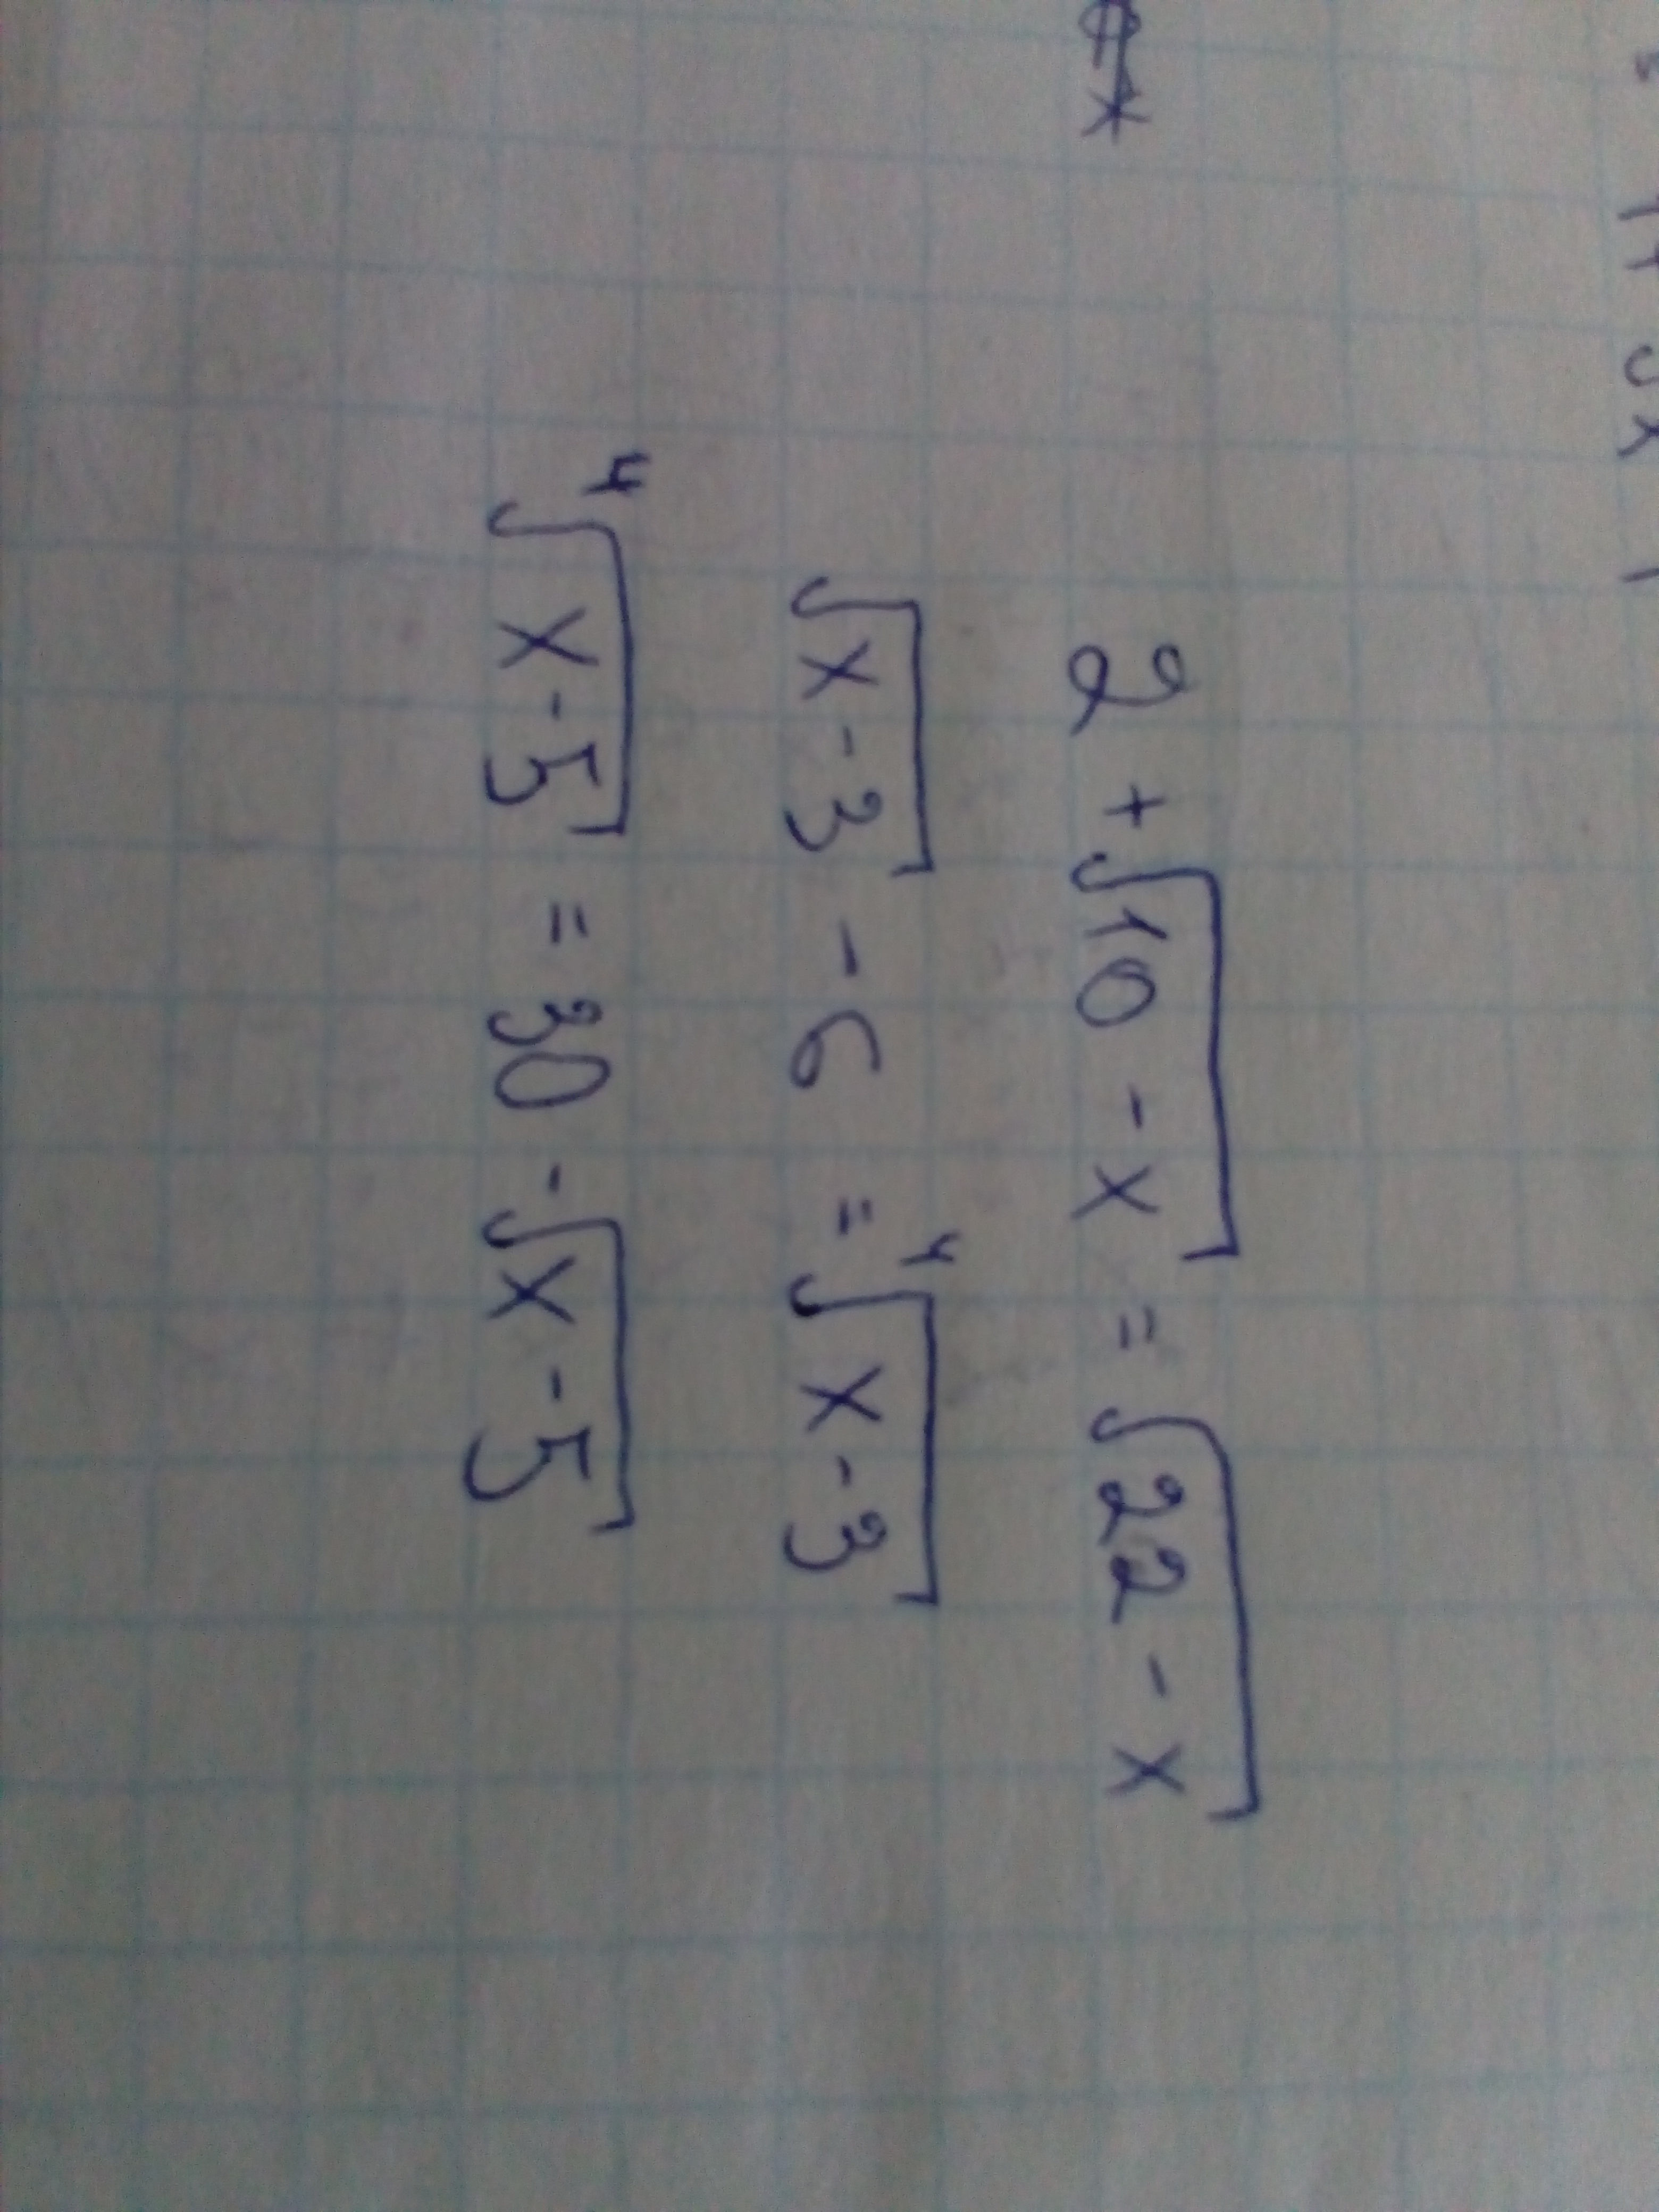 2 + √10 - x = √22 - x
√x - 3 - 6 = ⁴√x - 3
⁴√x - 5 = 30 - √x - 5